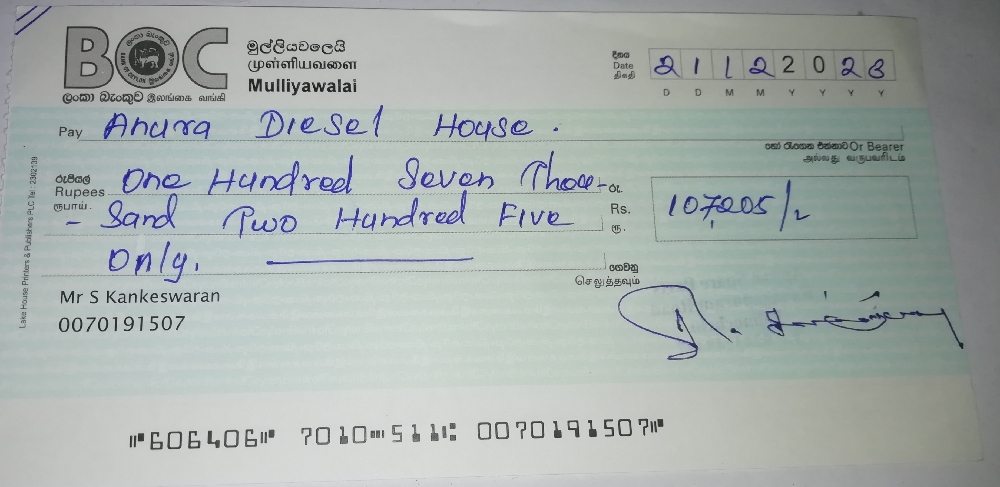 BOC
ලංකා බැංකුව இலங்கை வங்கி
මුල්ලියවලෙයි
முள்ளியவளை
Mulliyawalai
දිනය
Date
திகதி
21122023
D D M M Y Y Y Y
Pay Anura Diesel House.
හෝ රැගෙන එන්නාට Or Bearer
அல்லது வருபவரிடம்
රුපියල්
Rupees
ரூபாய்.
One Hundred Seven Thou-
- Sand Two Hundred Five
Only.
රු.
Rs.
ரூ.
107,205/-
ගෙවනු
செலுத்தவும்
Mr S Kankeswaran
0070191507
Lake House Printers & Publishers PLC Tel: 2302139
⑈606406⑈ 7010⑉511⑆ 0070191507⑈